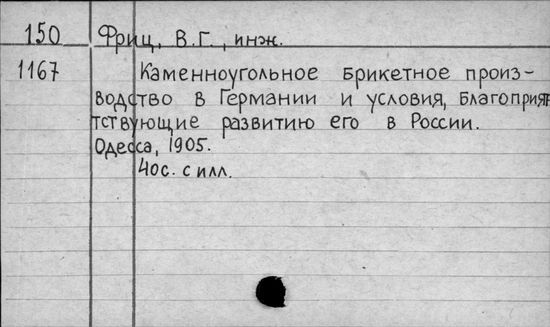 150 Фриц, В.Г., инж.
1167 Каменноугольное брикетное произ-
водство в Германии и условия, благоприя-
тствующие развитию его в России.
Одесса, 1905.
40с. с илл.